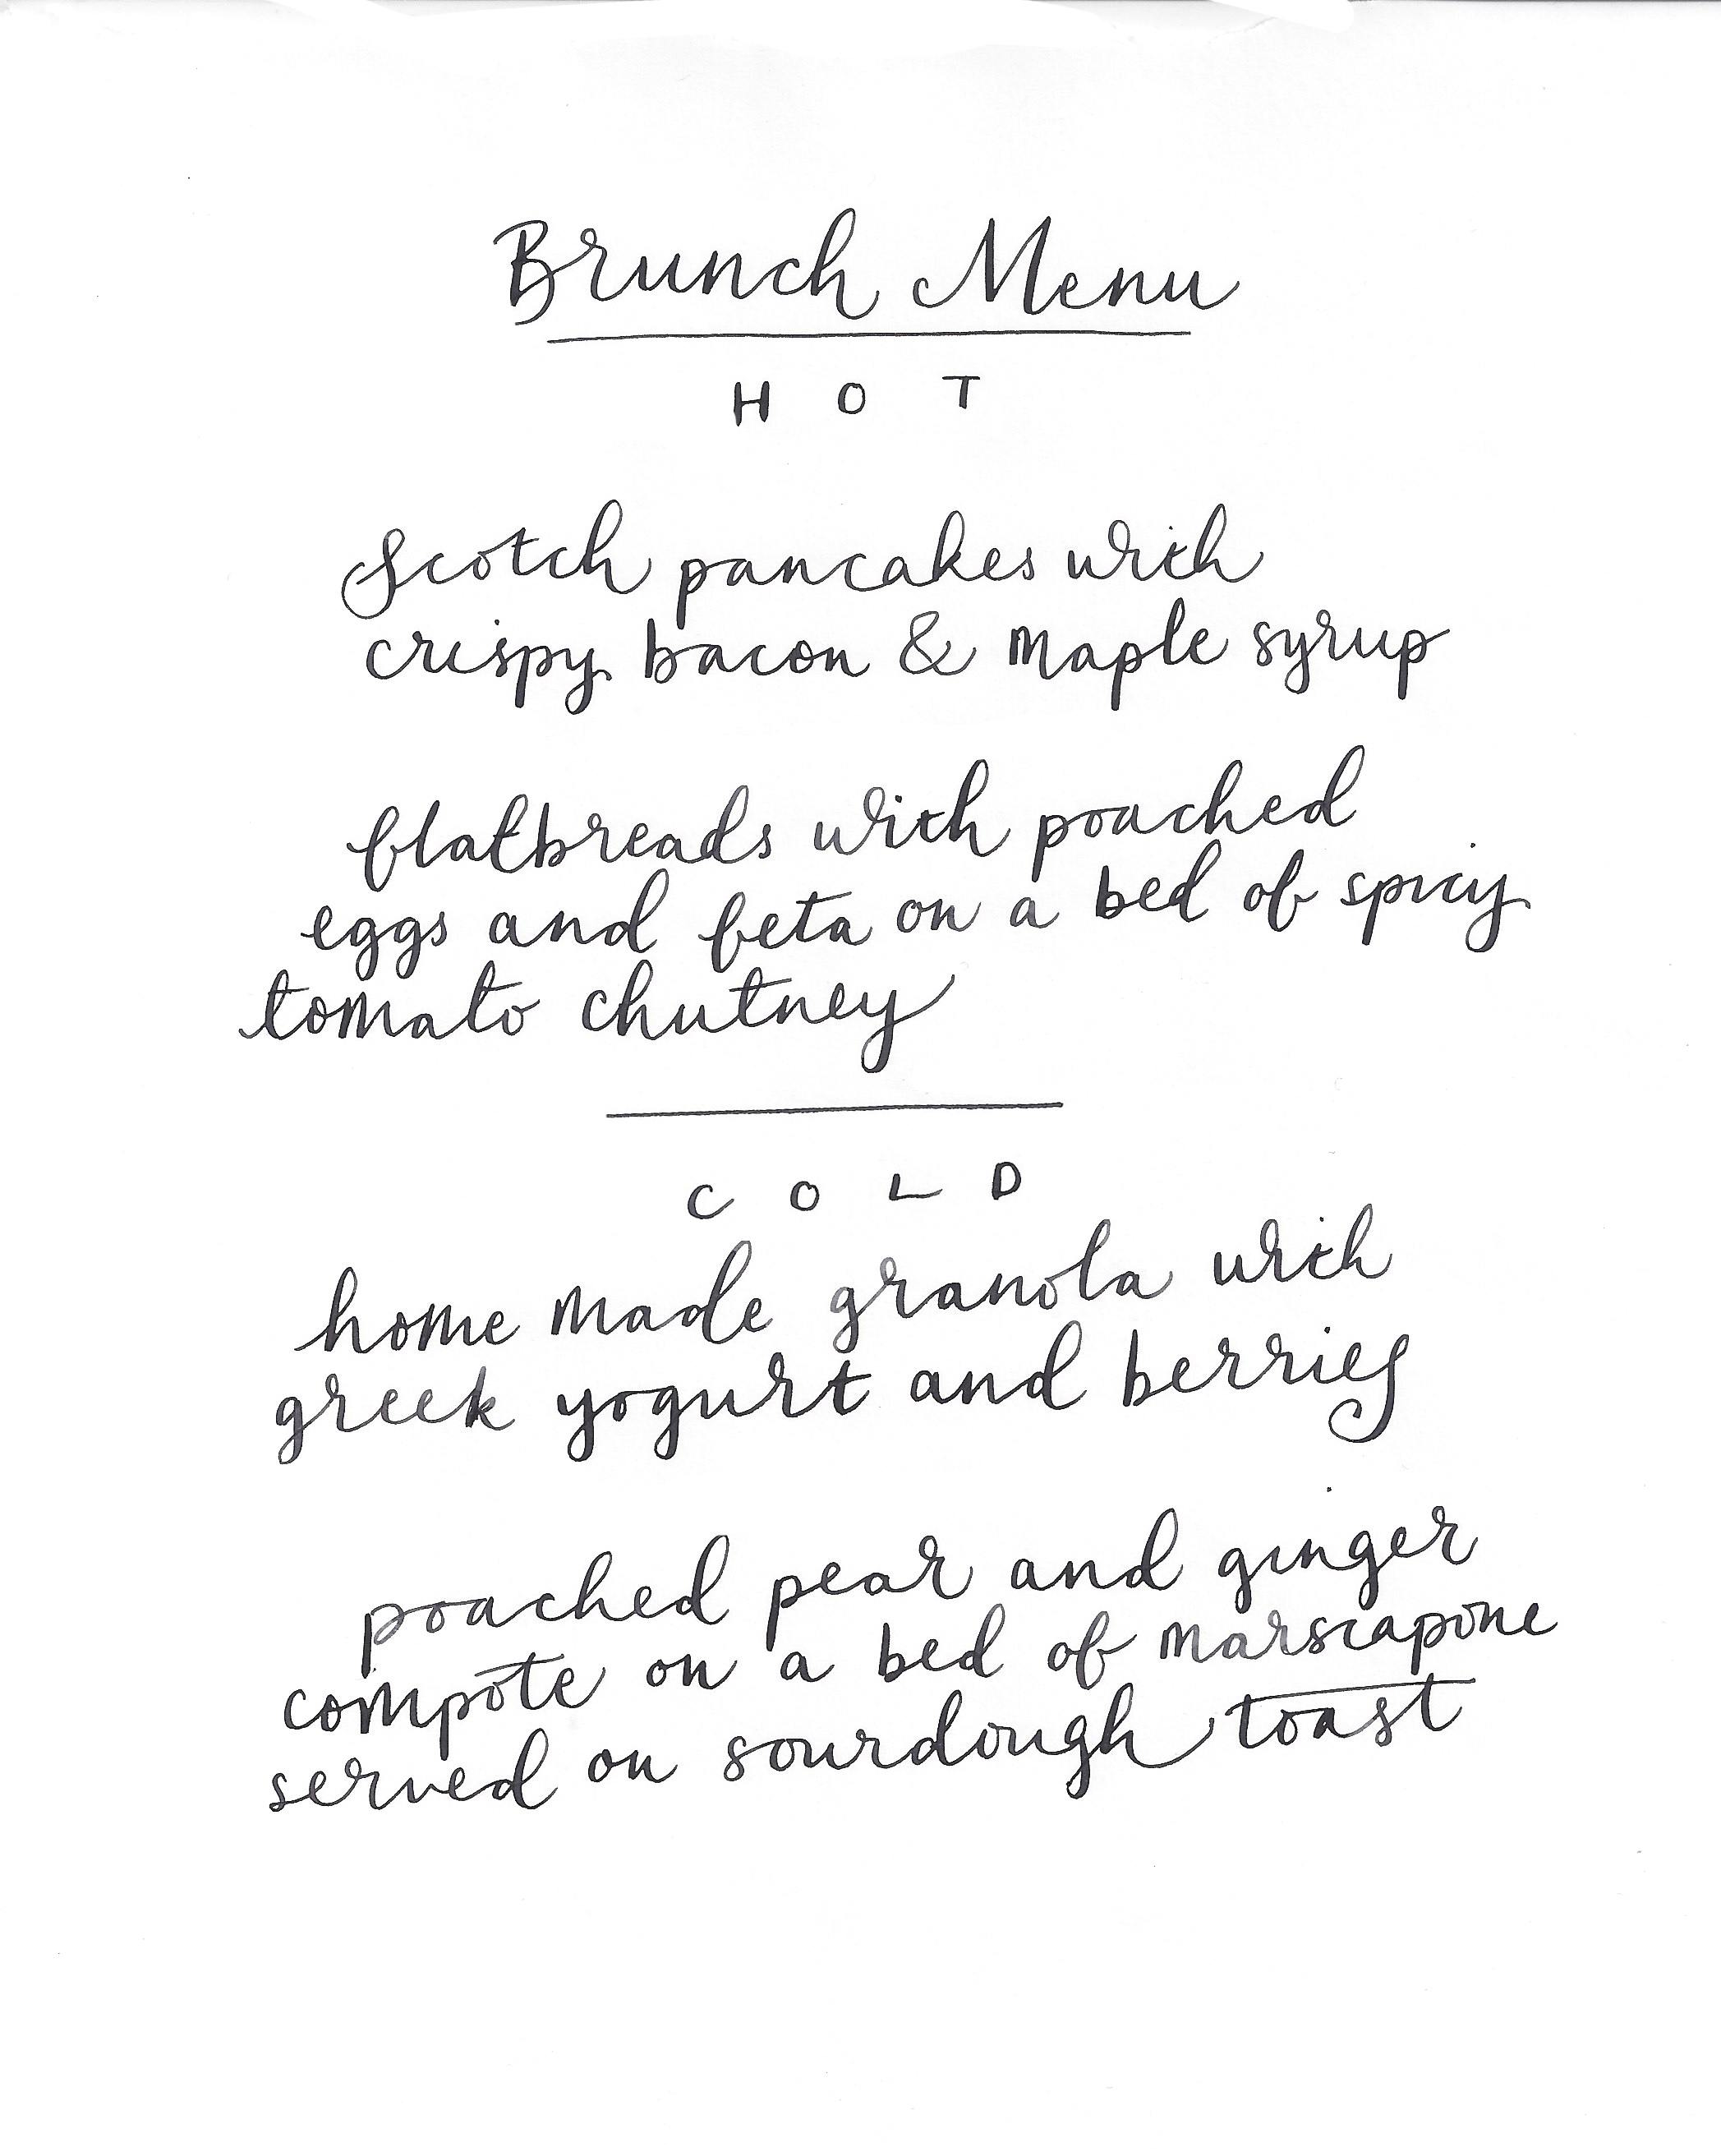 Brunch Menu
HOT
Scotch pancakes with
crispy bacon & maple syrup
flatbreads with poached
eggs and feta on a bed of spicy
tomato chutney
COLD
home made granola with
greek yogurt and berries
poached pear and ginger
compote on a bed of marscapone
served on sourdough toast